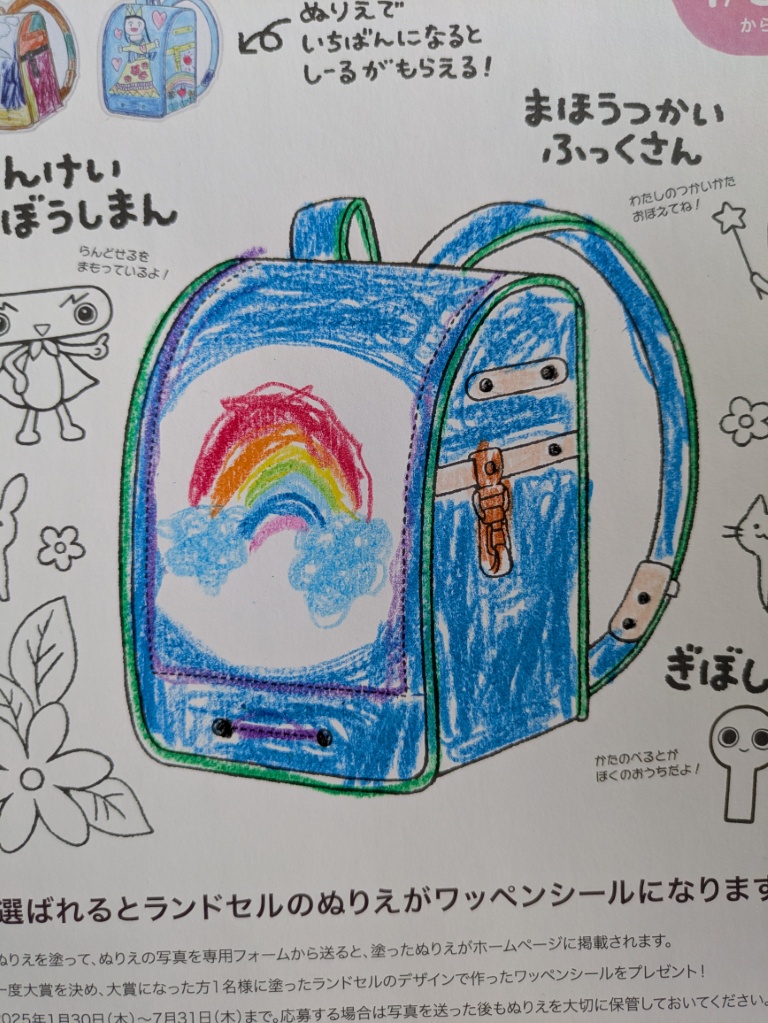 ぬりえで
いちばんになると
しーるがもらえる!
から
まほうつかい
ふっくさん
わたしのつかいかた
おぼえてね!
んけい
ぼうしまん
らんどせるを
まもっているよ!
ぎぼし
かたのべるとが
ぼくのおうちだよ!
選ばれるとランドセルのぬりえがワッペンシールになります
ぬりえを塗って、ぬりえの写真を専用フォームから送ると、塗ったぬりえがホームページに掲載されます。
一度大賞を決め、大賞になった方1名様に塗ったランドセルのデザインで作ったワッペンシールをプレゼント!
2025年1月30日(木)〜7月31日(木)まで。応募する場合は写真を送った後もぬりえを大切に保管しておいてください。